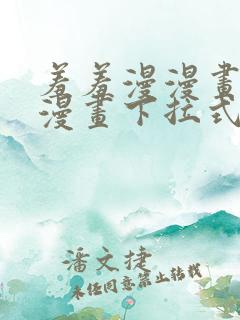 羞羞漫漫畫
漫畫下拉式
潘文捷
未任同意禁止转载